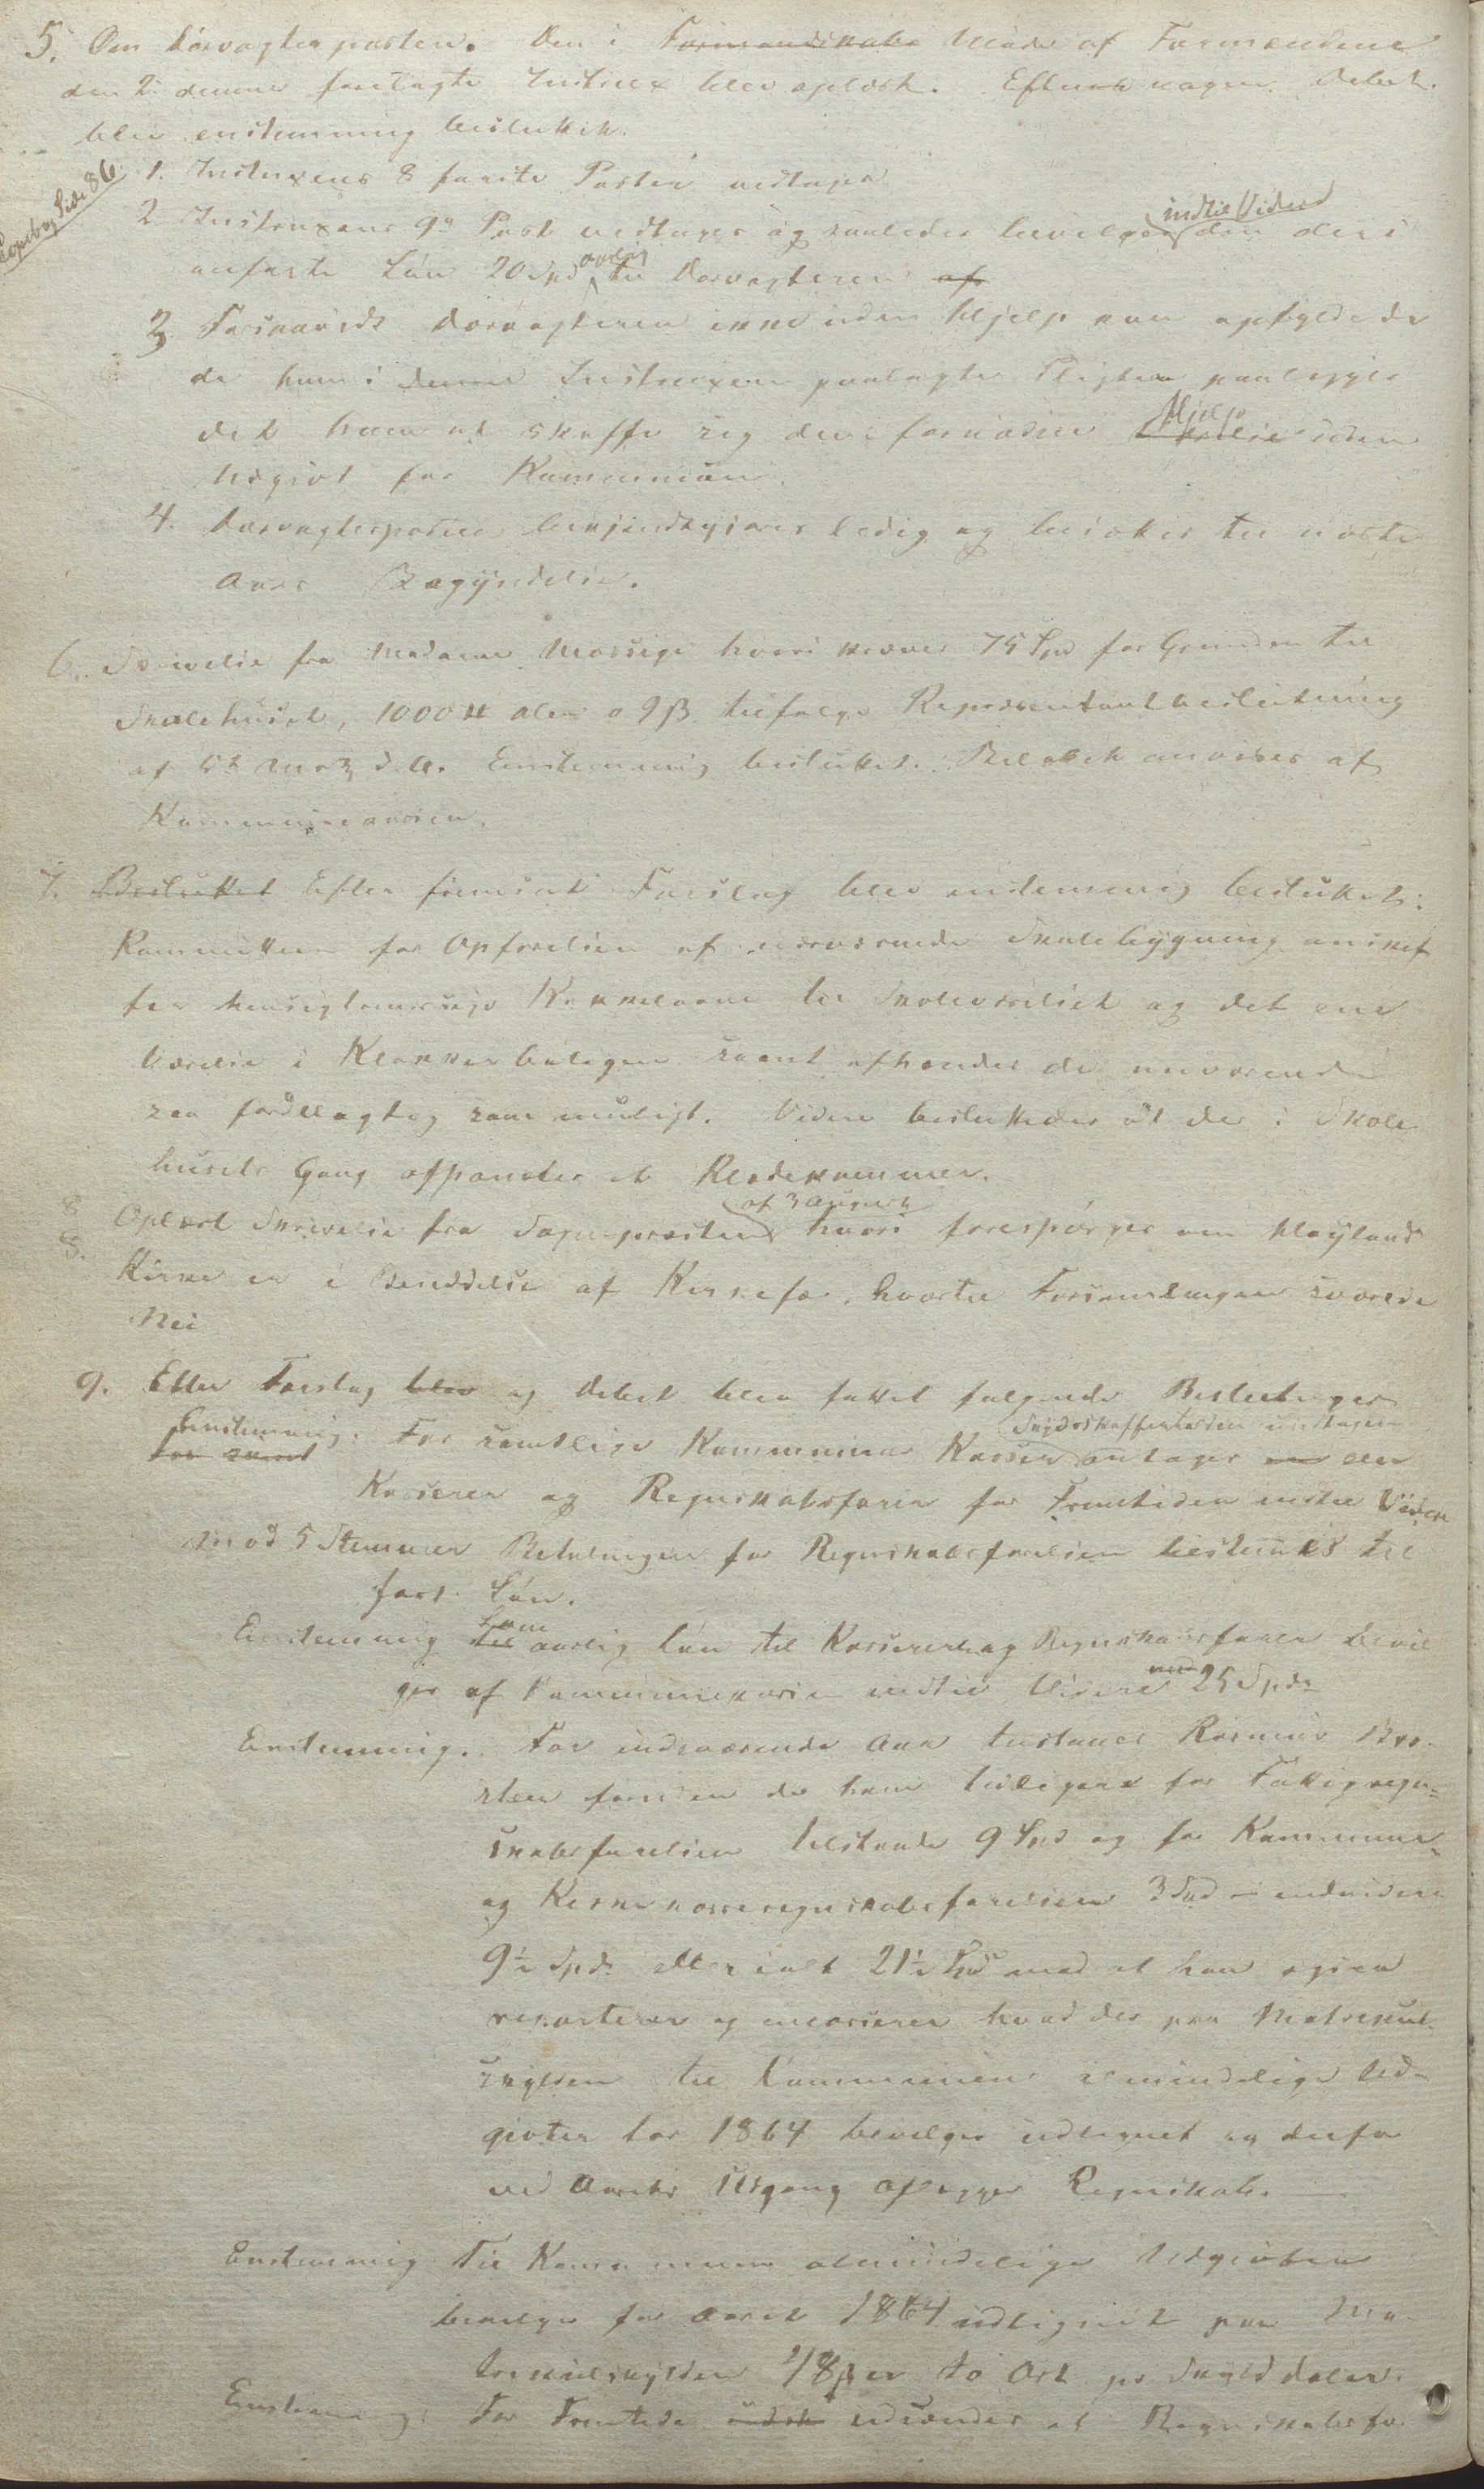 5. Om Dørvagterposten. Den i Formandskabe Møde af Formændene
den 2. dennes foretagte Instrux blev oplæst. Efter nogen Debat
blev enstemmig besluttet.
Kopibog Side 86
1. Instruxens 8 første Poster vedtages
2 Instruxens 9de Post vedtages og saaledes bevilges indtil Videre den der i
anførte Løn 20 Spd aarlig til Dørvagteren af
3. Forsaavidt Dørvagteren ikke uden Hjelp kan opfylde de
de ham i denne Instruxen paalagte Pligter paalegges
det ham at skaffe sig den fornødne Hjelp uden
Udgivt for Kommunen.
4. Dørvagterposten bekjendtgjøres ledig og besættes til næste
Aars Begyndelse.
6. Skrivelse fra Madame Mossige hvori kræves 75 Spd for Grunden til
Skolehuset, 1000 □ Alen a 9 β tilfølge Repræsentantbeslutning
af 5te Marz d. A. Enstemmig besluttet: Beløbet anvises af
Kommunekassen.
7. Besluttet Efter fremsat Forslag blev enstemmig besluttet:
Kommitteen for Opførelsen af nærværende Skolebygning anskaf
fer hensigtsmæssige Kakkelovne til Skoleværelset og det ene
Værelse i Klokkerboligen samt afhænder de nuværende
saa fordelagtig som muligt. Videre besluttedes at der i Skole
husets Gang afpaneles et Klædekammer.
8
8. Oplæst Skrivelse fra Sognepræsten af 3 August hvori forespørges om Høylands
Kirke er i Besiddelse af Kirkefæ, hvortil Forsamlingen svarede
Nei
9. Efter Forslag blev og Debat blev fattet følgende Beslutninger
Enstemmig. For samtlige Kommunens Kasser Skydsskafferkassen undtagen antages en der
for samt
Kasserer og Regnskabsfører for Fremtiden indtil Videre
mod 5 Stemmer Betalingen for Regnskabsførelsen bestemes til
fast Løn.
Enstemmig Som til aarlig Løn til Kasserer og Regnskabsfører bevil
ges af Kommunekassen indtil Videre 25 Spd.
Enstemmig. For indeværende Aar tilstaaes Rasmus Bro-
steen foruden de ham tidligere for Fattigregn-
skabsførelsen tilstaaede 9 Spd og for Kommune-
og Kirkekasseregnskabsførelsen 3 Spd – endvidere
9½ Spd. eller ialt 21½ Spd mod at han ogsaa
reparterer og incasserer hvad der paa Matrikul-
skylden til Kommunens almindelige Ud-
givter for 1864 bevilges udlignet og derfor
ved Aarets Udgang aflægger Regnskab.
Enstemmig Til Kommunens almindelige Udgivter
bevilges for Aaret 1864 udlignet paa Ma-
trikulskylden 48 β er to Ort pr Skylddaler.
Enstemmig: For Fremtiden udsk udsendes at Regnskabsfø-